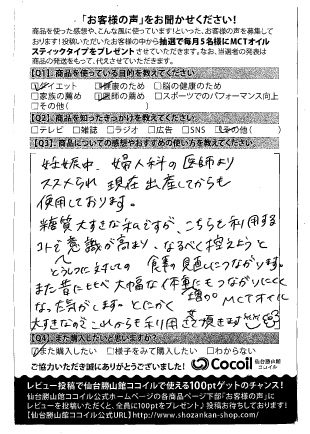 「お客様の声」をお聞かせください！
商品を使った感想や、こんな風に使っています！といった、お客様の声を募集して
おります！投稿いただいたお客様の中から抽選で毎月5名様にMCTオイル
スティックタイプをプレゼントさせていただきます。なお、当選者の発表は
商品の発送をもって、代えさせていただきます。
【Q1】 商品を使っている目的を教えてください。
☑ダイエット ☑健康のため □脳の健康のため
□家族の薦め ☑医師の薦め □スポーツでのパフォーマンス向上
□その他( )
【Q2】 商品を知ったきっかけを教えてください。
□テレビ □雑誌 □ラジオ □広告 □SNS ☑その他( )
【Q3】 商品についての感想やおすすめの使い方を教えてください。
妊娠中、婦人科の医師より
ススメられ 現在 出産してからも
使用しております。
糖質大すきな私ですが、こちらを利用する
コトで意識が高まり、なるべく控えようと
食事の見直しにつながります。
また昔と比べ大幅な体重増
にもつながりにく
なった気がします。とにかく MCTオイル
大すきなので これからも利用させて頂きます
【Q4】 また購入したいと思いますか？
☑また購入したい □様子をみて購入したい □わからない
ご協力いただき誠にありがとうございます。 Cocoil 仙台勝山館
ココイル
レビュー投稿で仙台勝山館ココイルで使える100ptゲットのチャンス！
仙台勝山館ココイル公式ホームページの各商品ページ下部「お客様の声」に
レビューを投稿いただくと、全員に100ptをプレゼント♪ 投稿お待ちしております！
【仙台勝山館ココイル公式URL】 http://www.shozankan-shop.com/